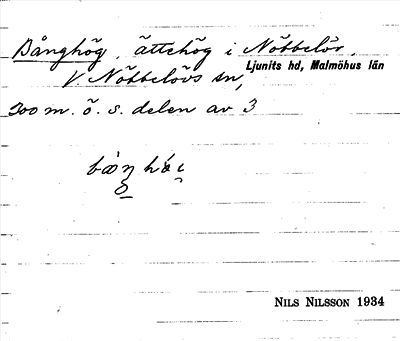 Bånghög, ättehög i Nöbbelöv.
Ljunits hd, Malmöhus län
V Nöbbelövs sn,
300 m. ö. s. delen av 3
NILS NILSSON 1934